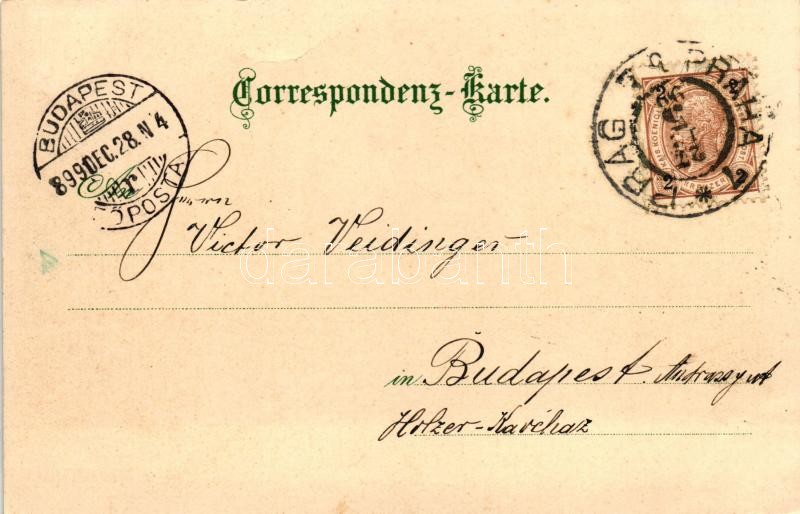 Correspondenz-Karte.
BUDAPEST
899 DEC. 28. N 4
FŐPOSTA
PRAG 1 PRAHA 1
2 KREUZER 2
An
Herrn
Victor Veidinger
in Budapest. Andrassy ut
Holzer-Kavéhaz
darabanth